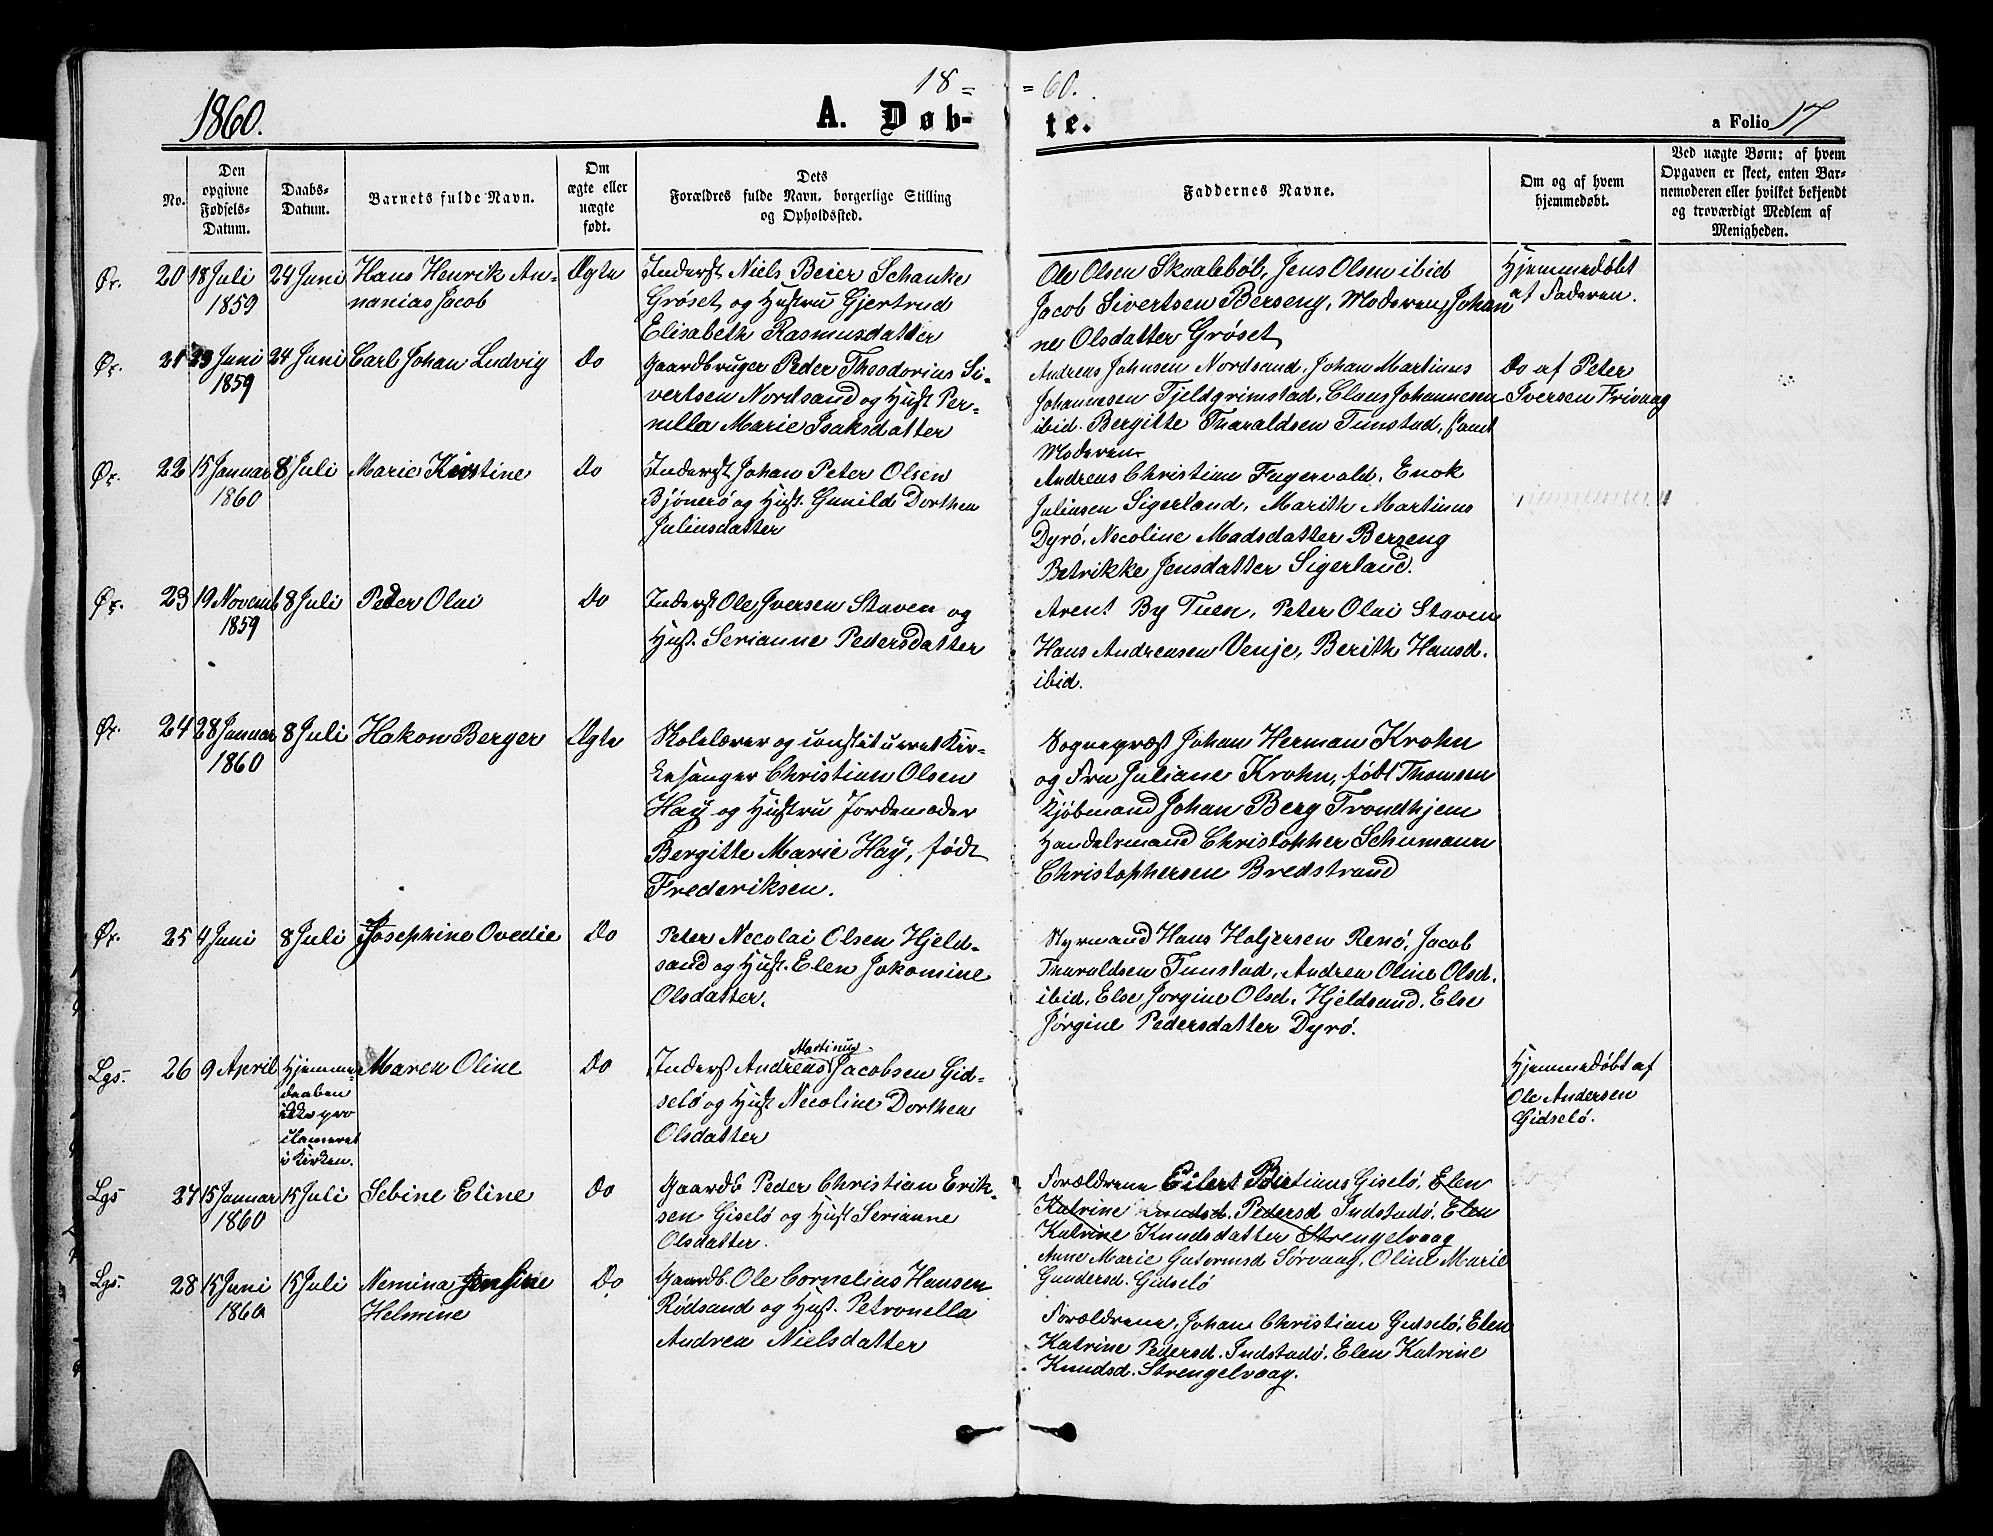 18 = = 60.
1860. A. Døb- te. a Folio 17
No.
Den opgivne Fødsels-Datum.
Daabs-Datum.
Barnets fulde Navn.
Om ægte eller uægte født.
Dets Forældres fulde Navn, borgerlige Stilling og Opholdssted.
Faddernes Navne.
Om og af hvem hjemmedøbt.
Ved uægte Børn: af hvem Opgaven er skeet, enten Barnemoderen eller hvilket bekjendt og troværdigt Medlem af Menigheden.
Øx. 20 18 Juli 1859 24 Juni Hans Henrik An-
nanias Jacob
Ægte
Inderst Niels Beier Schanke
Grøset og Hustru Gjertrud
Elisabeth Rasmusdatter
Ole Olsen Skvalebøl, Jens Olsen ibid
Jacob Sivertsen Berseng, Moderen, Johan
ne Olsdatter Grøset
Hjemmedøbt
af Faderen.
Øx. 21 23 Juni 1859 24 Juni Carl Johan Ludvig
Do
Gaardbruger Peder Theodorius Si-
vertsen Nordsand og Hust Per-
nilla Marie Isaksdatter
Andreas Johnsen Nordsand, Johan Martinus
Johannesen Fjeldgrimstad, Claus Johannesen
ibid. Bergitte Tharaldsen Tunstad, samt
Moderen
Do af Peter
Iversen Frivaag
Øx. 22 15 Januar 1860 8 Juli Marie Kirstine
Do
Inderst Johan Peter Olsen
Bjønerø og Hust. Gunild Dorthea
Juliusdatter
Andreas Christian Fagervold, Enok
Juliusen Sigerland, Marith Martinus
Dyrø, Necoline Madsdatter Berseng
Betrikke Jensdatter Sigerland.
Øx. 23 19 Novemb 1859 8 Juli Peder Olai
Do
Inderst Ole Iversen Staven og
Hust. Serianne Pedersdatter
Arent By Tuen, Peter Olai Staven
Hans Andreasen Venje, Berith Hansd.
ibid.
Øx. 24 28 Januar 1860 8 Juli Hakon Berger
Ægte
Skolelærer og constitueret Kir-
kesanger Christian Olsen
Hay og Hustru Jordemoder
Bergitte Marie Hay, født
Frederiksen.
Sognepræst Johan Herman Krohn
og Fru Juliane Krohn, født Thomsen
Kjøbmand Johan Berg Trondhjem
Handelsmand Christopher Schumann
Christophersen Bredstrand
Øx. 25 4 Juni 8 Juli Josephine Ovedie
Do
Peter Necolai Olsen Hjeld-
sand og Hust. Elen Jokomine
Olsdatter.
Styrmand Hans Holjersen Renø, Jacob
Tharaldsen Tunstad, Andrea Oline Olsd.
ibid, Else Jorgine Olsd. Hjeldsand, Else
Jørgine Pedersdatter Dyrø.
Lgs. 26 9 April Hjemme-
daaben
ikke pro
clameret
i Kirken.
Maren Oline
Do
Martinus
Inderst Andreas Jacobsen Gid-
selø og Hust Necoline Dorthea
Olsdatter
Hjemmedøbt af
Ole Andersen
Gidselø.
Lgs 27 15 Januar 1860 15 Juli Sebine Eline
Do
Gaardb Peder Christian Erik-
sen Giselø og Hust Serianne
Olsdatter.
Forældrene Eilert Giselø, Elen
Katrine Knudsd. Pedersd Indstadø, Elen
Katrine Knudsdatter Strengelvaag
Anne Marie Gutormsd Sørvaag, Oline Marie
Gundersd. Gidselø
Lgs 28 15 Juni 1860 15 Juli Nemina Jensine
Helmine
Do
Gaardb. Ole Cornelius Hansen
Rødsand og Hust. Petronella
Andrea Nielsdatter
Forældrene, Johan Christian Gidselø, Elen
Katrine Pedersd. Indstadø, Elen Katrine
Knudsd. Strengelvaag.